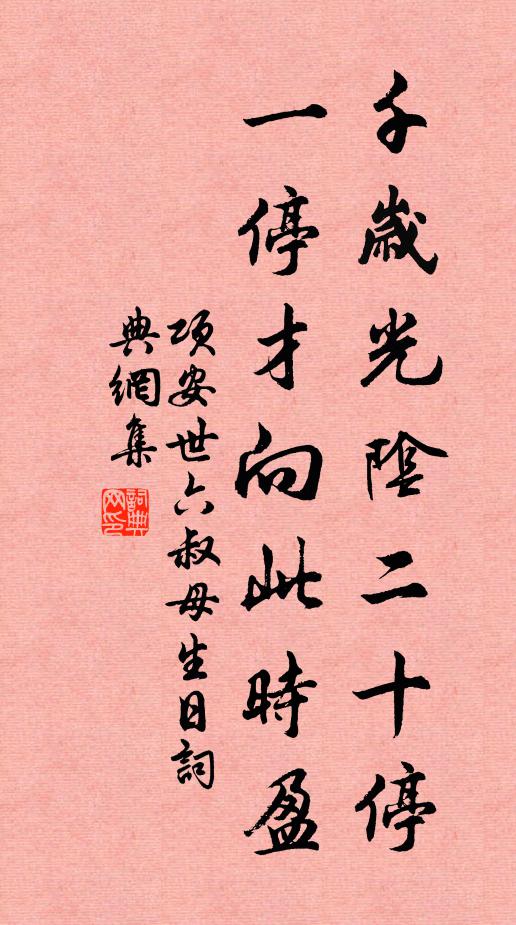 千歲光陰二十停
一停才向此時盈
項安世六叔母生日詞
典網集
詞典
网印